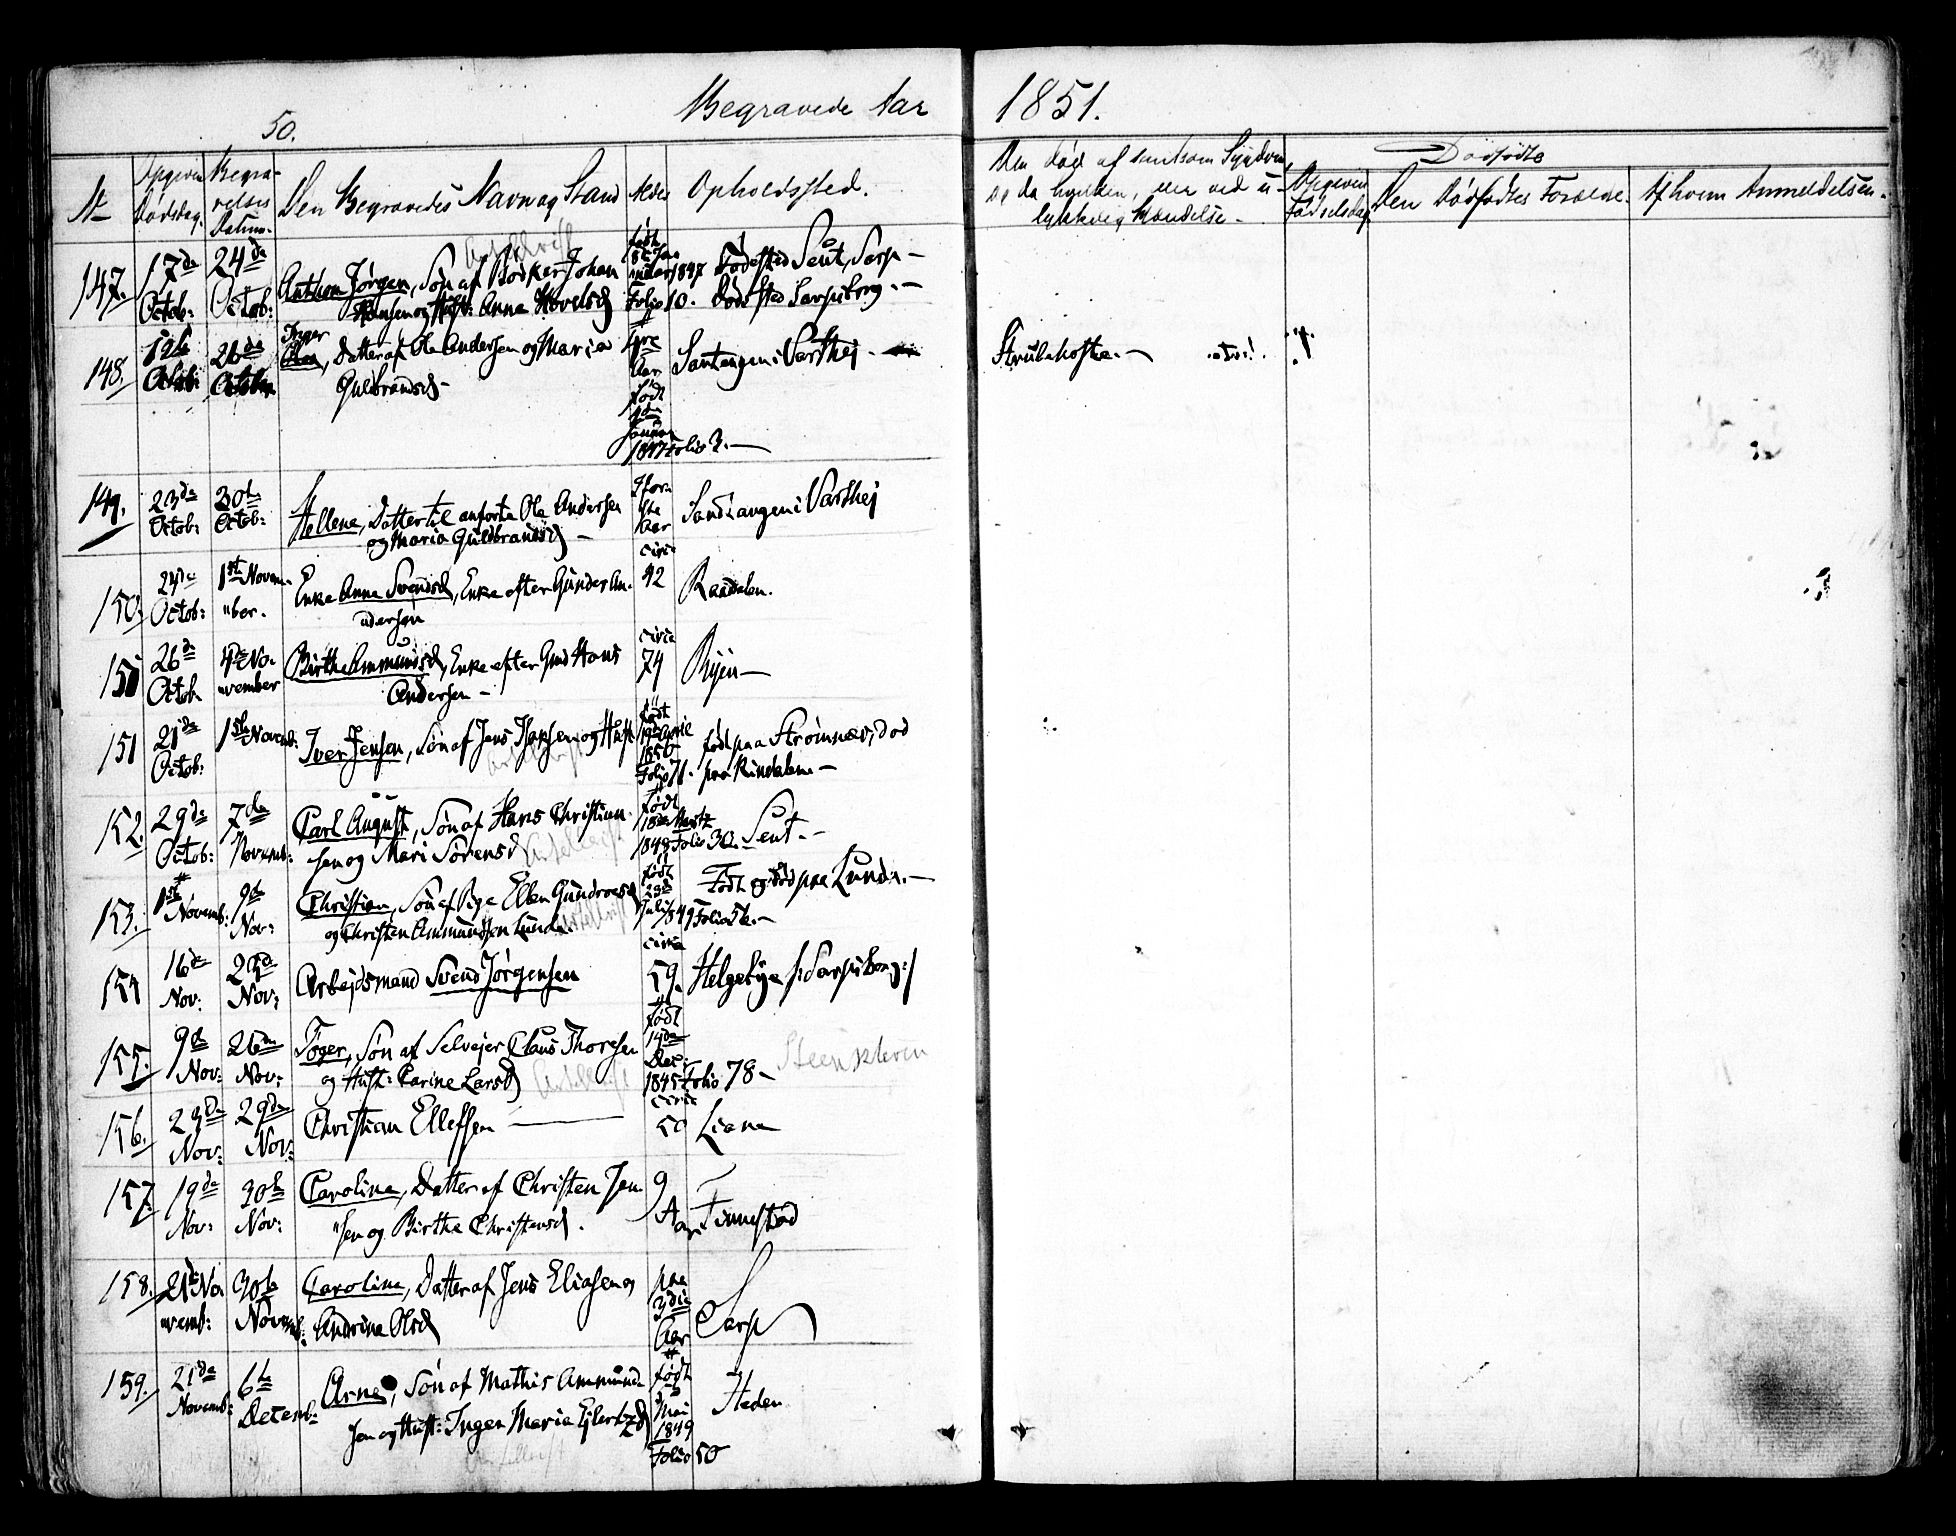 50.
Begravede Aar 1851.
No
Opgiven Dødsdag.
Begra-
velses
Datum.
Den Begravedes Navn og Stand
Alder
Opholdssted.
Den død af smitsom Sygdom,
og da hvilken, eller ved u-
lykkelig Hændelse.
Dødfødte
Opgiven Fødselsdag
Den Dødfødtes Forældre.
Af hvem Anmeldelsen.
147. 17de Octob: 24de Octob: Anthon Jørgen, Søn af Bødker Johan
Hansen og Hust: Anna Hovelsd
født 8de Januar 1847 Folio 10.
Fødested Sent, Sarp -
Dødssted Sarpsborg. -
148. 19de Octob: 26de October Inger
Datter af Ole Andersen og Maria
Guldbrandsd -
4re Aar født Januar 1847 Folio 3. -
Santangen i Varthej. -
Strubehoste. -
149. 23de Octob: 30te Octob: Hellene, Datter til anførte Ole Andersen
og Maria Guldbrandsd -
Aar
Sandtangen i Varthej
150. 24de Octob: 1ste Novem-
"ber. Enke Anna Svendsd, Enke efter Gunder An-
"dersen
circa 42
Raadalen.
150 26de Octob 4de No-
"vember Birthe Ammundsd, Enke efter Gmd Hans
Andersen -
circa 74
Ryen -
151 21de Octob: 1ste Novemb: Iver Jensen, Søn af Jens Jepsen og Hust
født 19de April 1850 Folio 71.
født paa Strømnes, død
paa Rindalen -
152. 29de Octob: 7de Novemb: Carl August, Søn af Hans Christian-
sen og Mari Sørensd
født 18de Martz
1848 Folio 30. Sent. -
153. 1ste Novemb: 9de Nov: Christian, Søn af Pige Ellen Gundroesd
og Christen Ammundsen Lunde.
født 23de Juli 1849 Folio 56. -
Født og død paa Lunde. -
154 16de Nov: 23de Nov: Arbejdsmand Svend Jørgensen
circa 59.
Helgebye /: Sarpsborg :/
155. 9de Nov: 26de Nov: Tøger, Søn af Selvejer Claus Thoresen
og Hust: Carine Larsd
født 14de Dec: 1845 Folio 78 -
Steenkleven
156. 23de Nov: 29de Nov: Christian Ellefsen
circa 50
Liane
157 19de Nov: 30te Nov: Carolina, Datter af Christen Jen-
"sen og Birthe Christensd.
9 Aar
Tunestad
158. 21de No-
vemb: 30te Novemb: Carolina, Datter af Jens Eliasen og
Andrine Olsd
paa 3die Aar
Sarp
159. 21de Novemb: 6te Decemb: Arne, Søn af Mathis Ammund-
sen og Hust: Inger Maria Ejlertzd
født Mai 1849 Folio 50
Heden